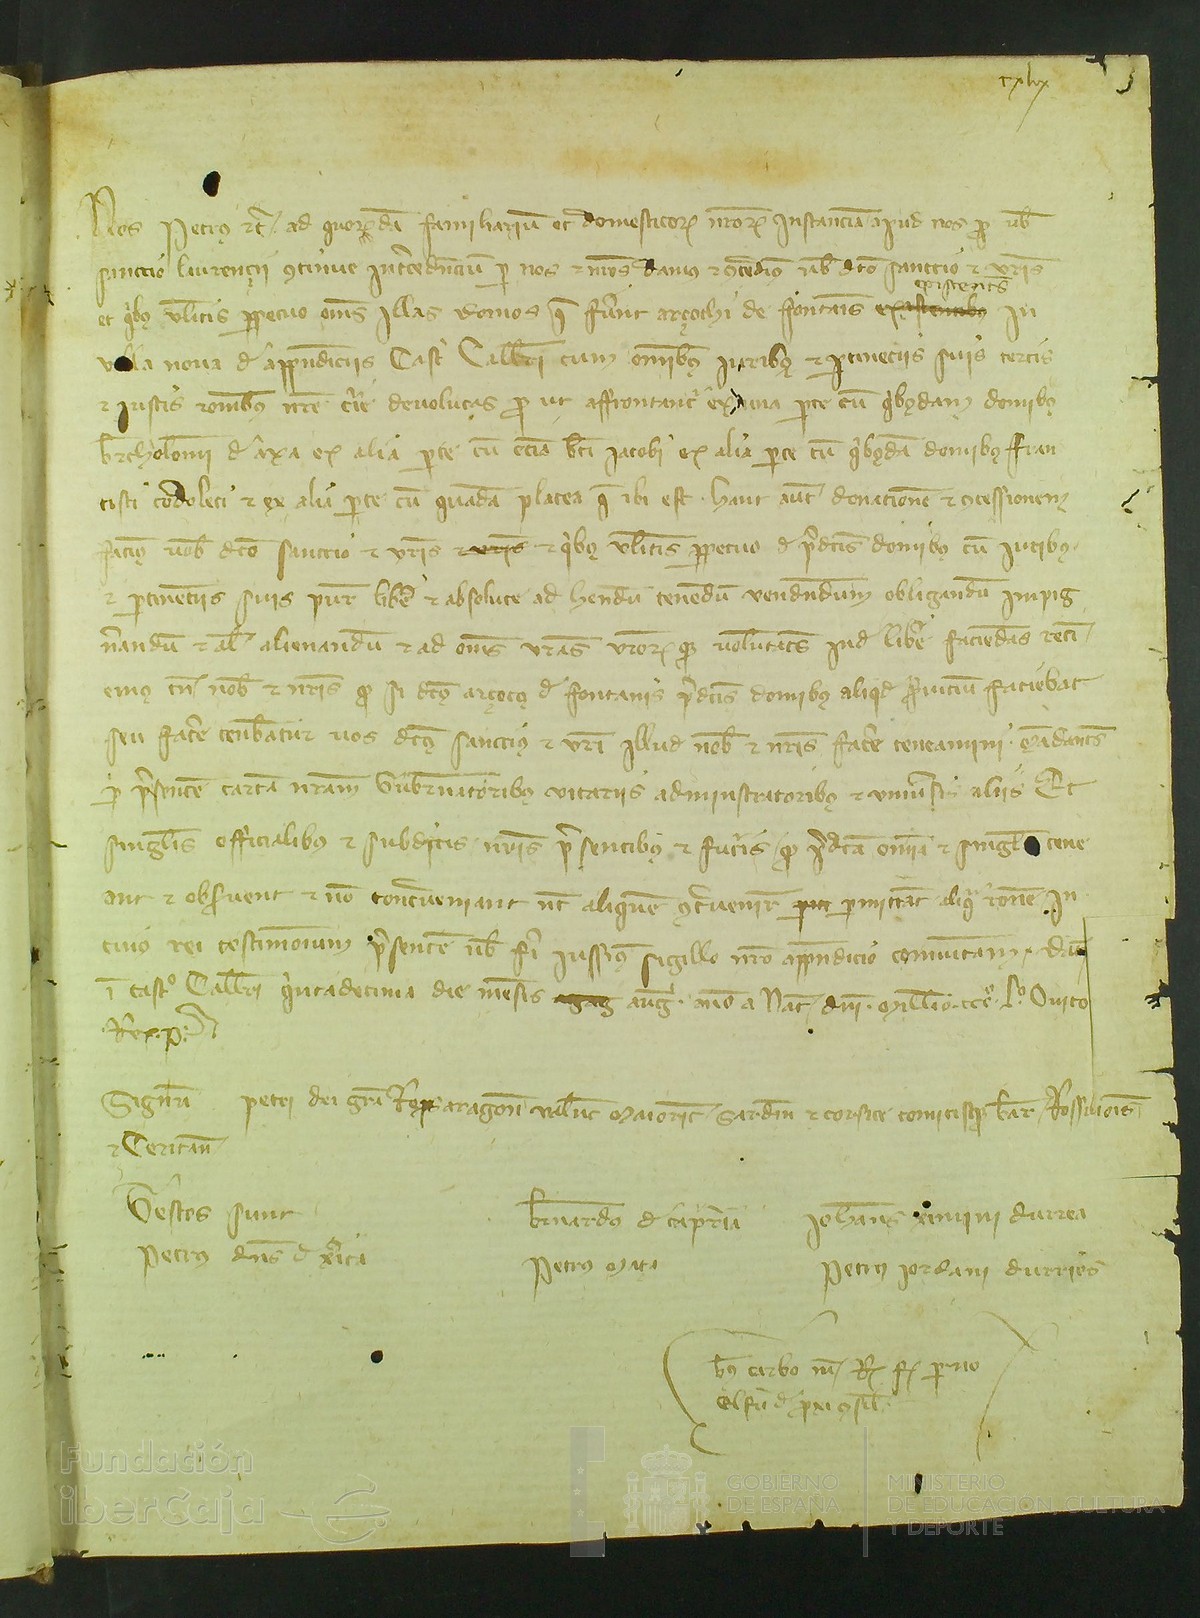 cxlix
Nos Petrus etc. ad quorundam familiarium et domesticorum nostrorum instanciam apud nos pro vobis
sanccio continue intercedencium per nos et nostros damus et concedimus vobis dicto sanccio et vestris
existentes
et quibus volueritis perpetuo omnes illas domos que fuerunt arcochi de fontanis existentibus in
villa nova de appendiciis Castri Callari cum omnibus iuribus et pertinenciis suis certis
et iustis racionibus nostre curie devolutas prout affrontantur ex una parte cum quibusdam domibus
de axa ex alia parte cum ecclesia beati Jacobi ex alia parte cum quibusdam domibus Fran
cisci et ex alia parte cum quadam platea que ibi est. hanc autem donationem et concessionem
facimus vobis dicto sanccio et vestris et vestris et quibus volueritis perpetuo de predictis domibus cum iuribus
et pertinenciis suis pure libere et absolute ad habendum tenendum vendendum obligandum impig
nerandum et aliter alienandum et ad omnes vestras vestrorumque voluntates inde libere faciendas reti
emus tamen nobis et nostris quod si dictus de fontanis predictis domibus aliquod servicium faciebat
seu facere tenebatur vos dictus sanccius et vestri illud nobis et nostris facere teneamini. Mandantes
per presentem cartam nostram Gubernatoribus vicariis administratoribus et universis aliis Et
singulis officialibus et subditis nostris presentibus et futuris quod predicta omnia et singula tene
ant et observent et non contraveniant nec aliquem contravenire permittant aliqua racione. In
cuius rei testimonium presentem vobis fieri iussimus sigillo nostro appendicio comunitam. Datum
in castro Callari quintadecima die mensis augusti anno a Nat. domini Millesimo CCC° L° Quito
Rex. P.
Signum Petri dei gracia Regis aragonum valencie Maioric. Sardinie et corsice comitisque barch. Rossilionis
et Ceritanie
Testes sunt
Petrus dominus de xerica
Bernardus de capraria
Petrus Maça
Johannes eximini durrea
Petrus jordani durries
carbo mandato Regis facto per
consil.
Fundación
iberCaja
GOBIERNO
DE ESPAÑA
MINISTERIO
DE EDUCACIÓN, CULTURA
Y DEPORTE